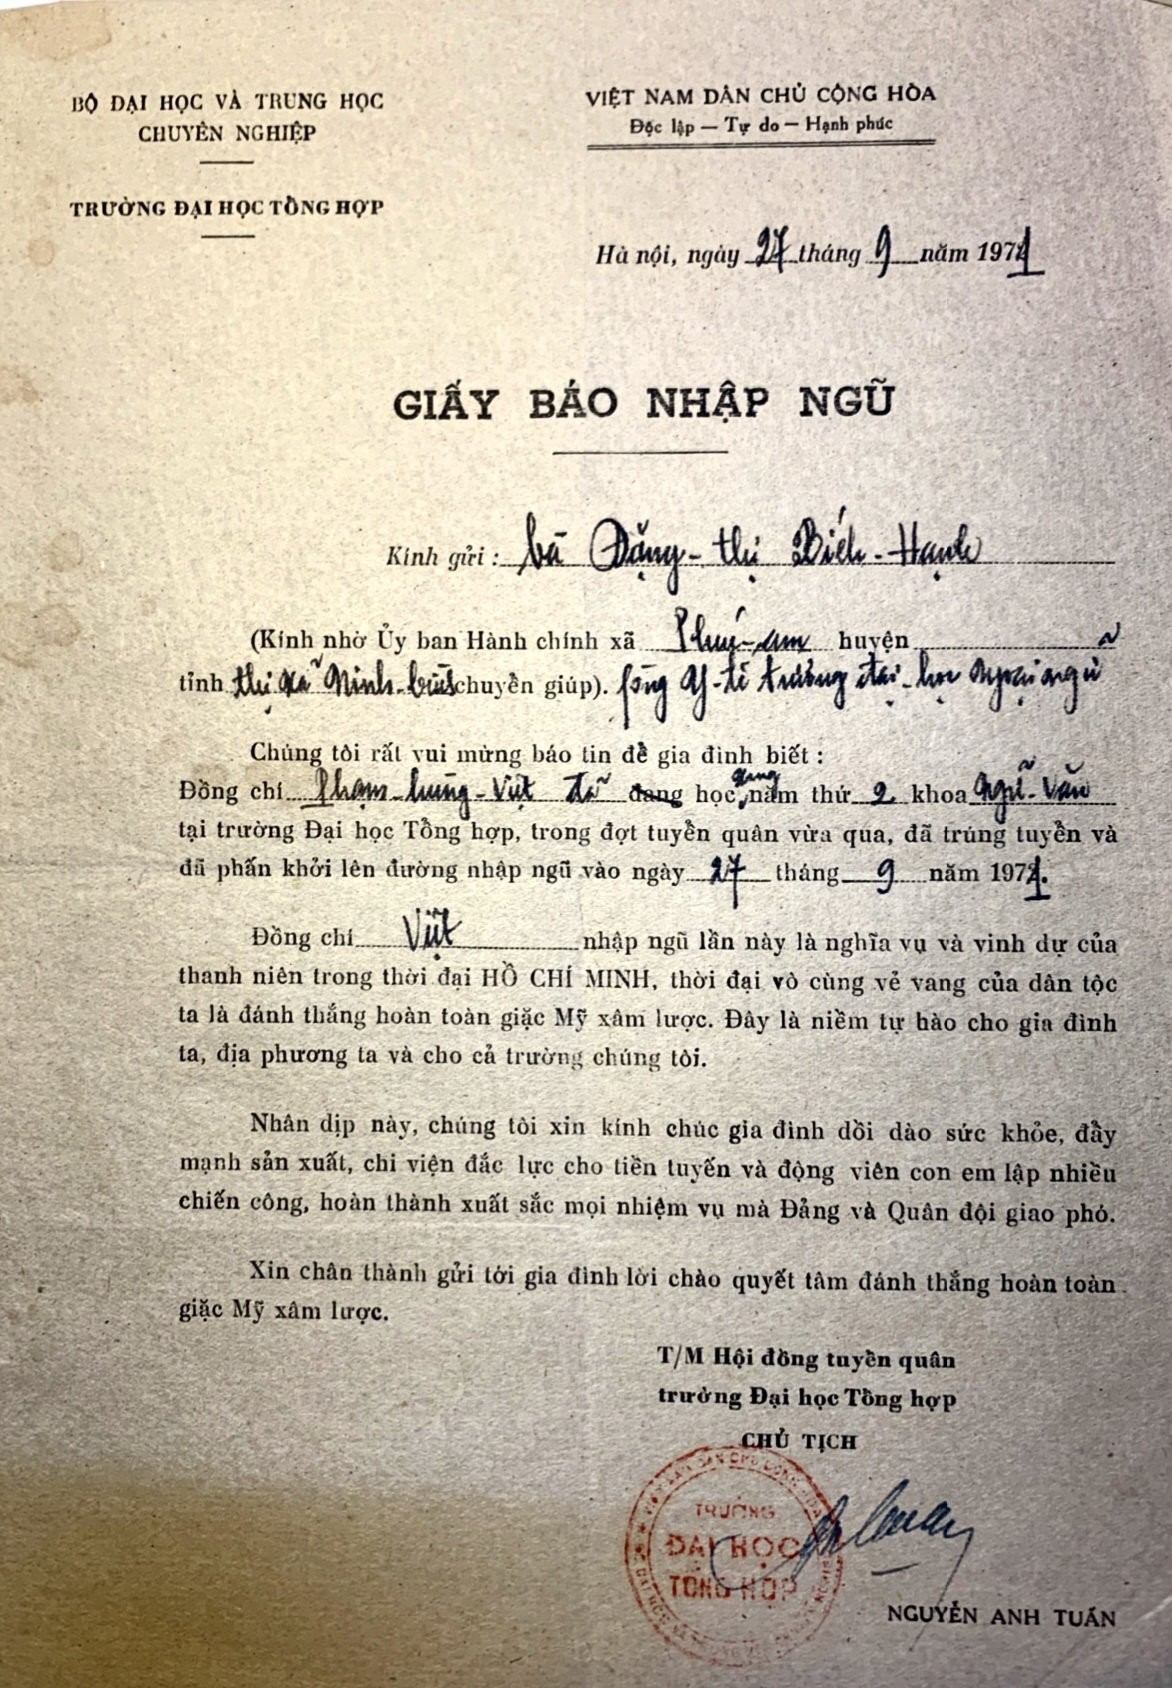 BỘ ĐẠI HỌC VÀ TRUNG HỌC
CHUYÊN NGHIỆP
TRƯỜNG ĐẠI HỌC TỔNG HỢP
VIỆT NAM DÂN CHỦ CỘNG HÒA
Độc lập — Tự do — Hạnh phúc
Hà nội, ngày 27 tháng 9 năm 1971
GIẤY BÁO NHẬP NGŨ
Kính gửi : bà Đặng-thị Biếch-Hạnh
(Kính nhờ Ủy ban Hành chính xã huyện
tỉnh thị xã Ninh-bình chuyển giúp). fòng Y-tế trường đại-học Ngoại ngữ
Chúng tôi rất vui mừng báo tin để gia đình biết :
Đồng chí Phạm-hùng-Việt đã đang học xong năm thứ 2 khoa Ngữ-Văn
tại trường Đại học Tổng hợp, trong đợt tuyển quân vừa qua, đã trúng tuyển và
đã phấn khởi lên đường nhập ngũ vào ngày 27 tháng 9 năm 1971.
Đồng chí Việt nhập ngũ lần này là nghĩa vụ và vinh dự của
thanh niên trong thời đại HỒ CHÍ MINH, thời đại vô cùng vẻ vang của dân tộc
ta là đánh thắng hoàn toàn giặc Mỹ xâm lược. Đây là niềm tự hào cho gia đình
ta, địa phương ta và cho cả trường chúng tôi.
Nhân dịp này, chúng tôi xin kính chúc gia đình dồi dào sức khỏe, đẩy
mạnh sản xuất, chi viện đắc lực cho tiền tuyến và động viên con em lập nhiều
chiến công, hoàn thành xuất sắc mọi nhiệm vụ mà Đảng và Quân đội giao phó.
Xin chân thành gửi tới gia đình lời chào quyết tâm đánh thắng hoàn toàn
giặc Mỹ xâm lược.
T/M Hội đồng tuyển quân
trường Đại học Tổng hợp
CHỦ TỊCH
TRƯỜNG
ĐẠI HỌC
TỔNG HỢP
NGUYỄN ANH TUẤN